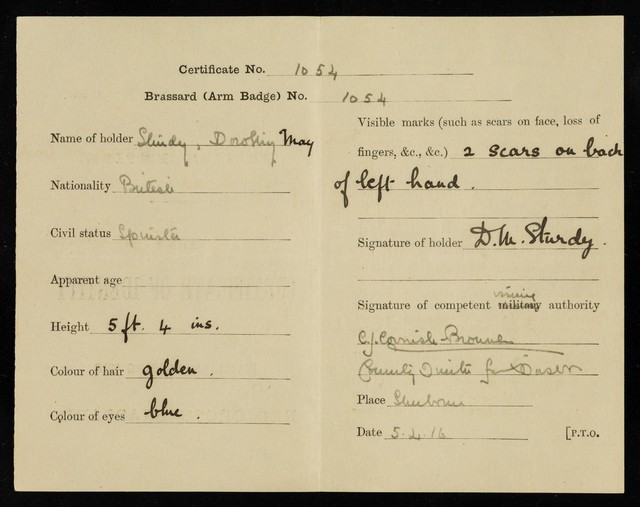 Certificate No. 1054
Brassard (Arm Badge) No. 1054
Name of holder Sturdy, Dorothy May
Nationality British
Civil status Spinster
Apparent age
Height 5 ft. 4 ins.
Colour of hair golden.
Colour of eyes blue.
Visible marks (such as scars on face, loss of
fingers, &c., &c.) 2 scars on back
of left hand.
Signature of holder D. M. Sturdy.
Signature of competent military issuing authority
C. J. Cornish-Browne
County Director for Dorset
Place Sherborne
Date 5.4.16
[P.T.O.